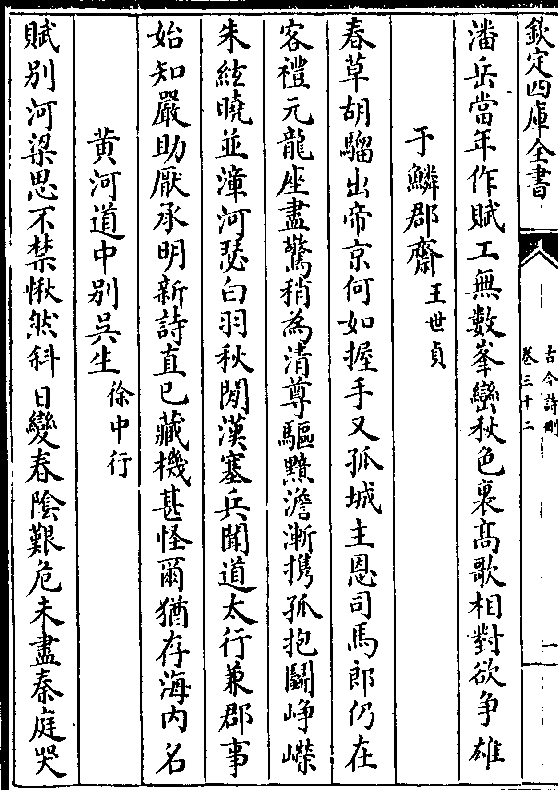 欽定四庫全書
古今詩刪
卷三十二
一
潘岳當年作賦工無數峯巒秋色裏髙歌相對欲争雄
于鱗郡齋王世貞
春草胡騮出帝京何如握手又孤城主恩司馬郎仍在
客禮元龍座盡驚稍為清尊驅黯澹漸携孤抱鬭峥嶸
朱絃曉並漳河瑟白羽秋閒漢塞兵聞道太行兼郡事
始知嚴助厭承明新詩直已藏機甚怪爾猶存海内名
黄河道中别吳生徐中行
賦别河梁思不禁愀然斜日變春陰艱危未盡秦庭哭